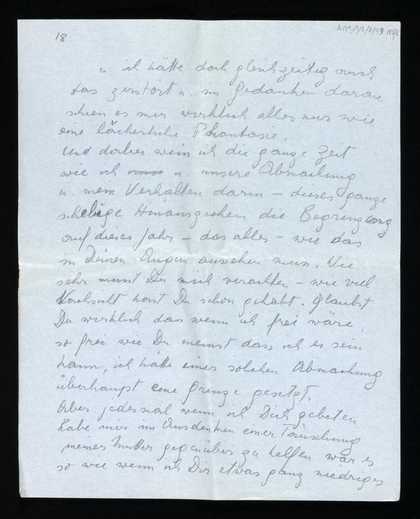 18
u ich hätte doch gleichzeitig auch
das zerstört u. im Gedanken daran
schien es mir wirklich alles nur wie
eine lächerliche Phantasie.
Und dabei weiss ich die ganze Zeit
wie ich u unsere Abmachung
u. mein Verhalten darin – dieses ganze
Hinausziehen die Begrenzung
auf dieses Jahr – das alles – wie das
in Deinen Augen aussehen muss. Wie
sehr musst Du mich verachten – wie viel
hast Du schon gehabt. Glaubst
Du wirklich dass wenn ich frei wäre,
so frei wie Du meinst dass ich es sein
kann, ich hätte einer solchen Abmachung
überhaupt eine Grenze gesetzt.
Aber jedesmal wenn ich Dich gebeten
habe mir im Ausdenken einer Täuschung
meiner Mutter gegenüber zu helfen war es
so wie wenn ich Dir etwas ganz niedriges